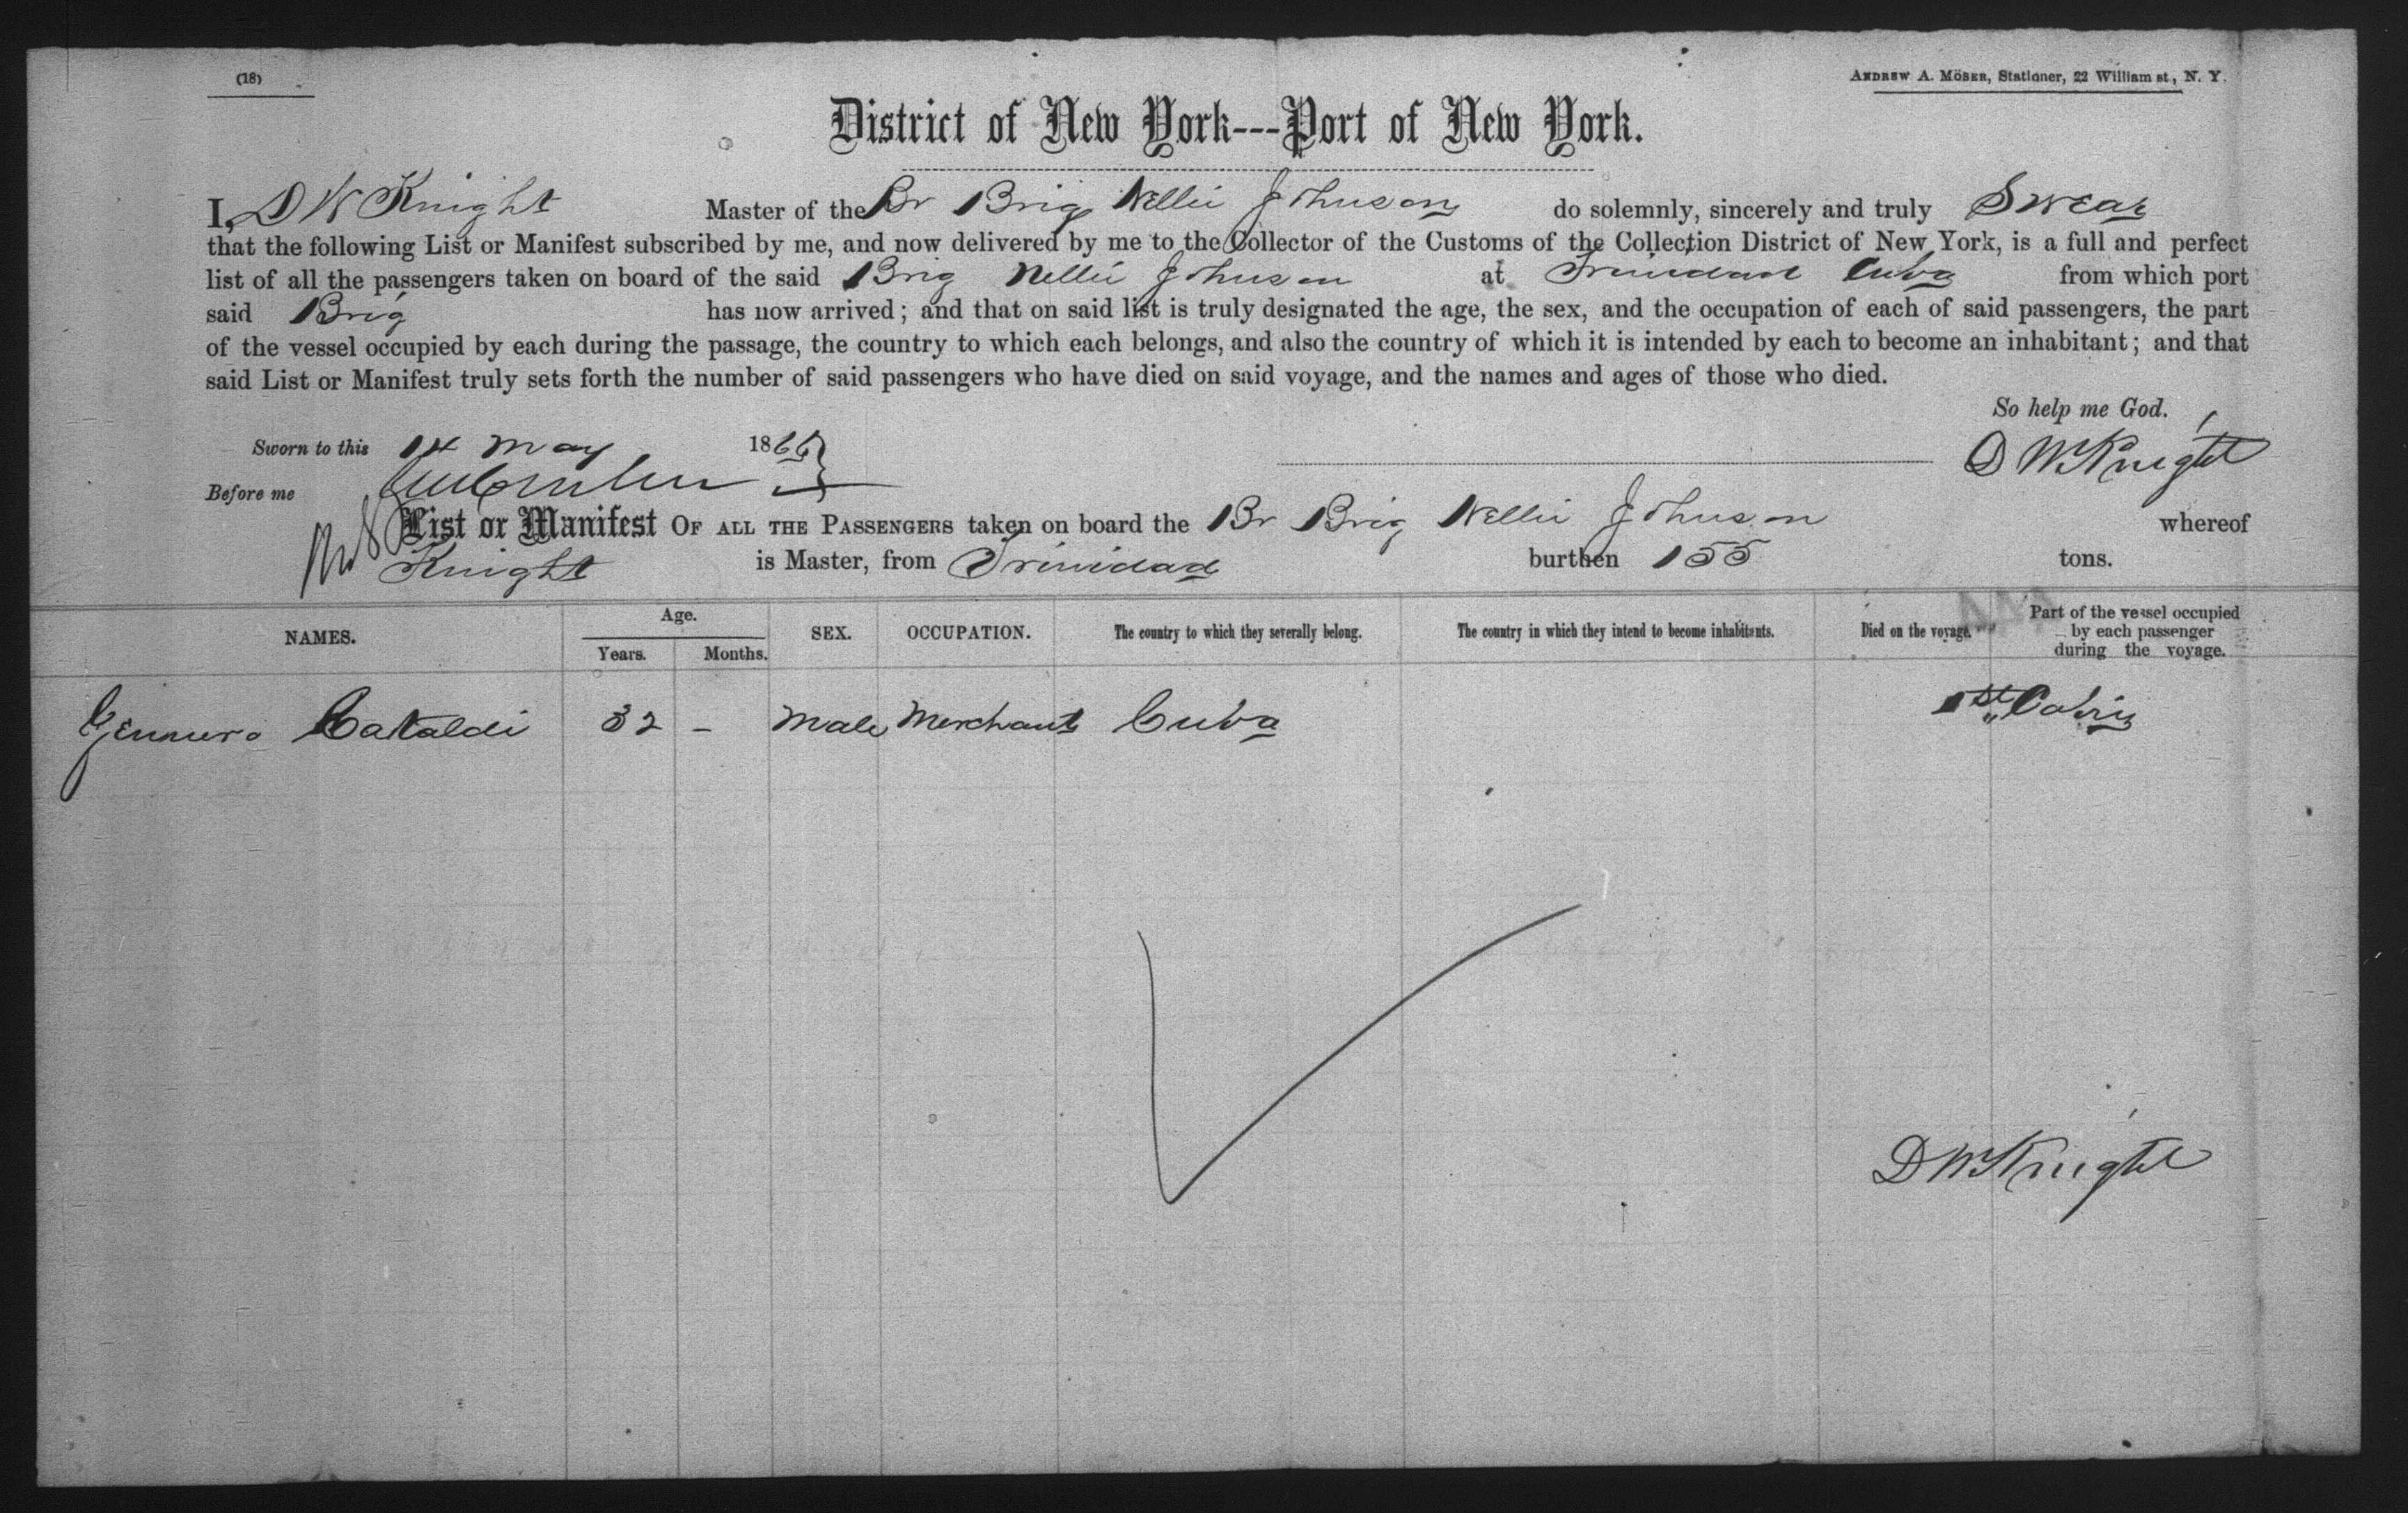 (18)
Andrew A. Möser, Stationer, 22 William st., N. Y.
District of New York---Port of New York.
I, D W Knight Master of the Br Brig Nellie Johnson do solemnly, sincerely and truly Swear
that the following List or Manifest subscribed by me, and now delivered by me to the Collector of the Customs of the Collection District of New York, is a full and perfect
list of all the passengers taken on board of the said Brig Nellie Johnson at Trinidad Cuba from which port
said Brig has now arrived; and that on said list is truly designated the age, the sex, and the occupation of each of said passengers, the part
of the vessel occupied by each during the passage, the country to which each belongs, and also the country of which it is intended by each to become an inhabitant; and that
said List or Manifest truly sets forth the number of said passengers who have died on said voyage, and the names and ages of those who died.
So help me God.
Sworn to this 14 May 1866
D W Knight
Before me
List or Manifest OF ALL THE PASSENGERS taken on board the Br Brig Nellie Johnson whereof
Knight is Master, from Trinidad burthen 155 tons.
NAMES. Age. Years. Months. SEX. OCCUPATION. The country to which they severally belong. The country in which they intend to become inhabitants. Died on the voyage. Part of the vessel occupied by each passenger during the voyage.
Gennuro Cataldi 32 - Male Merchant Cuba 1st Cabin
D W Knight